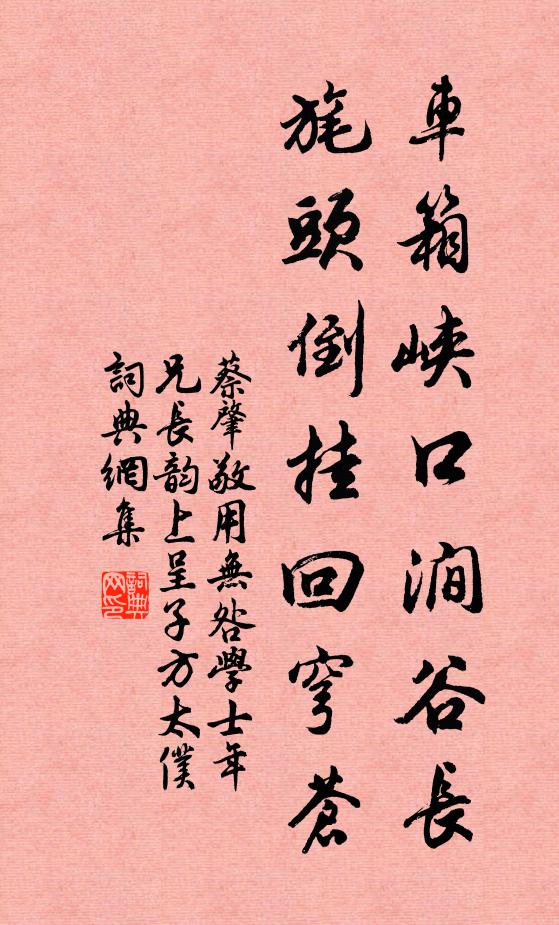 車箱峽口澗谷長
旄頭倒挂回穹蒼
蔡肇敬用無咎學士年
兄長韵上呈子方太僕
詞典網集
詞典
网印